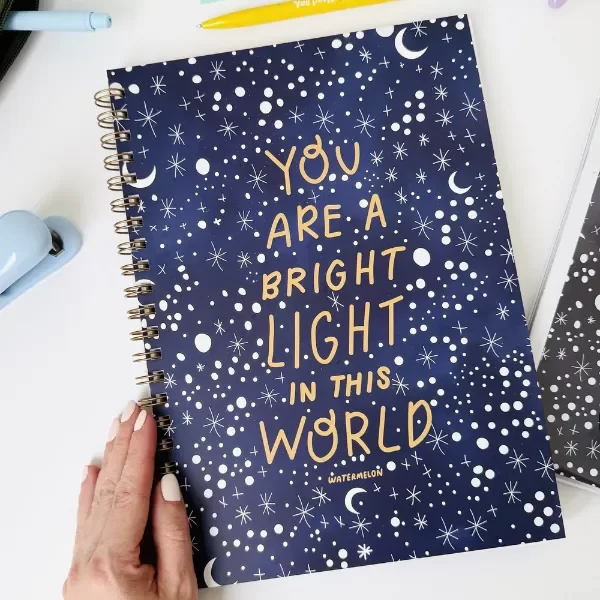 YOU
ARE A
BRIGHT
LIGHT
IN THIS
WORLD
WATERMELON